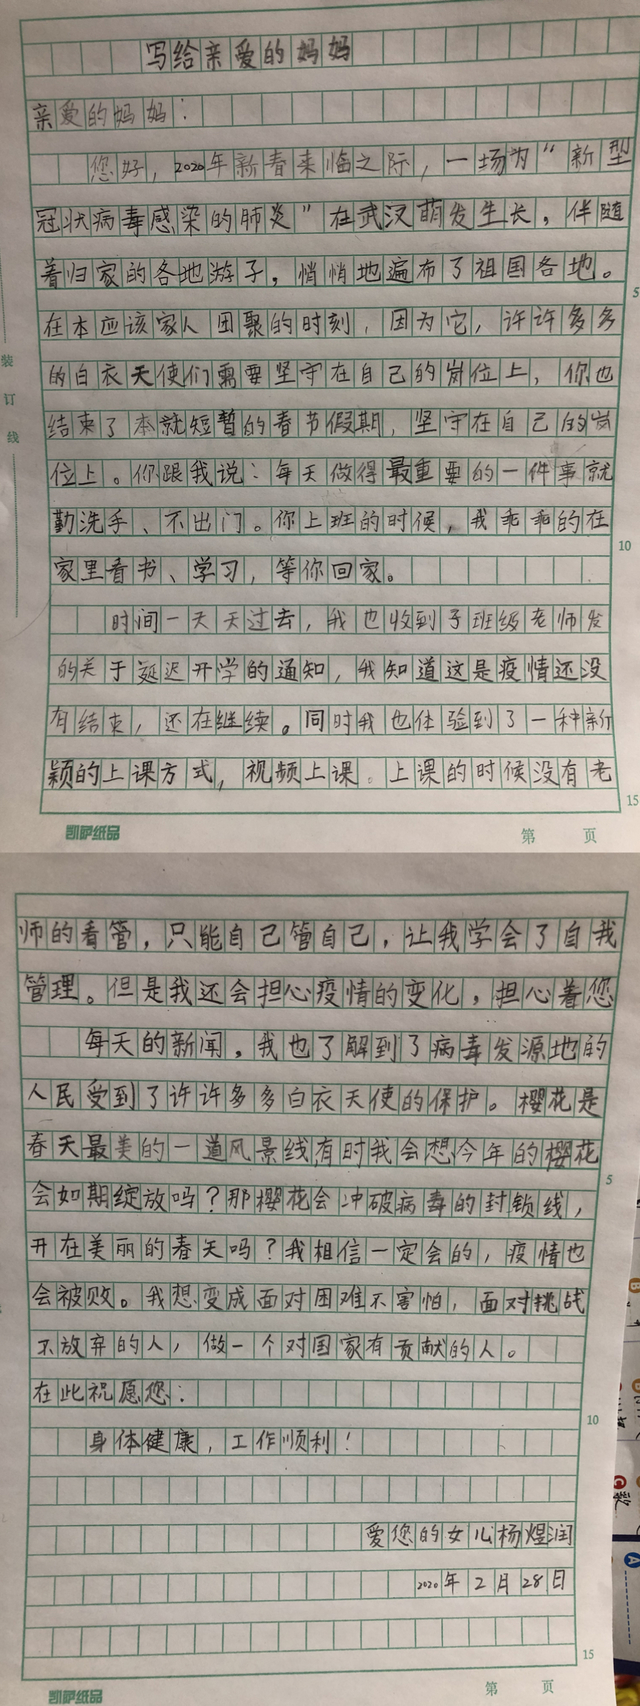 写给亲爱的妈妈
亲爱的妈妈：
您好，2020年新春来临之际，一场为“新型
冠状病毒感染的肺炎”在武汉萌发生长，伴随
着归家的各地游子，悄悄地遍布了祖国各地。
5
在本应该家人团聚的时刻，因为它，许许多多
的白衣天使们需要坚守在自己的岗位上，你也
结束了本就短暂的春节假期，坚守在自己的岗
位上。你跟我说：每天做得最重要的一件事就
勤洗手、不出门。你上班的时候，我乖乖的在
10
家里看书、学习，等你回家。
时间一天天过去，我也收到了班级老师发
的关于延迟开学的通知，我知道这是疫情还没
有结束，还在继续。同时我也体验到了一种新
颖的上课方式，视频上课。上课的时候没有老
15
装
订
线
凯萨纸品
第 页
师的看管，只能自己管自己，让我学会了自我
管理。但是我还会担心疫情的变化，担心着您
每天的新闻，我也了解到了病毒发源地的
人民受到了许许多多白衣天使的保护。樱花是
春天最美的一道风景线有时我会想今年的樱花
5
会如期绽放吗？那樱花会冲破病毒的封锁线，
开在美丽的春天吗？我相信一定会的，疫情也
会被败。我想变成面对困难不害怕，面对挑战
不放弃的人，做一个对国家有贡献的人。
在此祝愿您：
10
身体健康，工作顺利！
爱您的女儿杨煜润
2020年2月28日
15
凯萨纸品
第 页